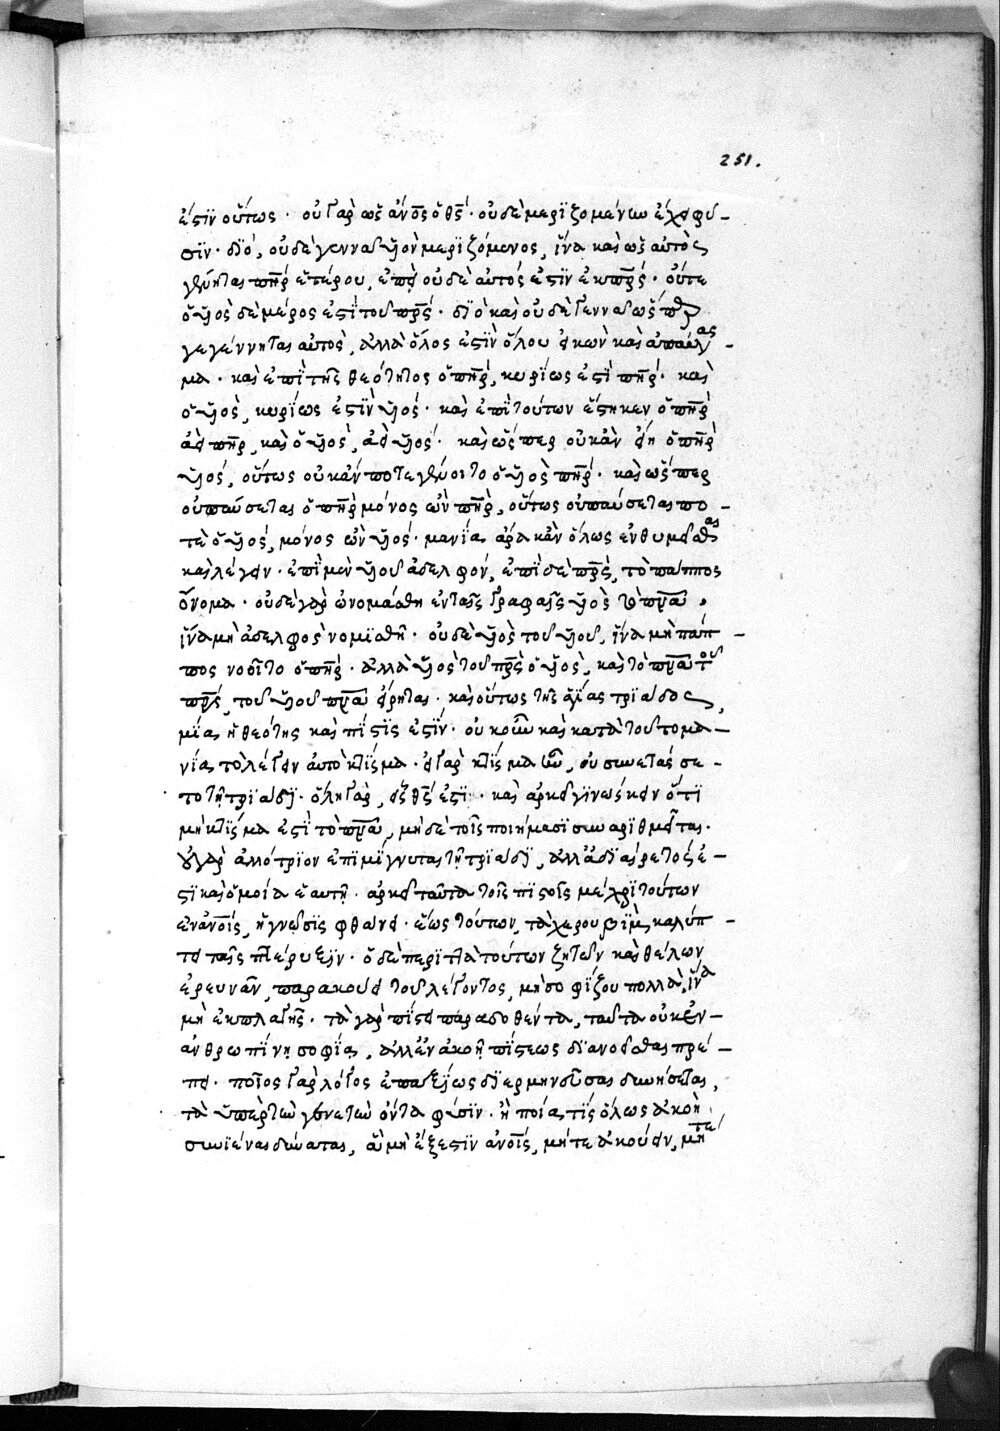 251.
ἐστὶν οὕτως · οὐ γὰρ ὡς ἄνος ὁ θς · οὐδὲ μεριζομένην ἔχει φύ-
σιν · διὸ, οὐδὲ γεννᾶ υἱὸν μεριζόμενος, ἵνα καὶ ὡς αὐτὸς
γένηται πηρ ἑτέρου, ἐπεὶ οὐδὲ αὐτός ἐστιν ἐκ πρς · οὔτε
ὁ υἱὸς δὲ μέρος ἐστὶ τοῦ πρς · διὸ καὶ οὐδὲ γεννᾶ ὥσπερ
γεγέννηται αὐτὸς, ἀλλὰ ὅλος ἐστὶν ὅλου εἰκὼν καὶ ἀπαύγας-
μα · καὶ ἐπὶ τῆς θεότητος ὁ πηρ, κυρίως ἐστὶ πηρ · καὶ
ὁ υἱὸς, κυρίως ἐστὶν υἱός · καὶ ἐπὶ τούτων ἕστηκεν ὁ πηρ
ἀεὶ πηρ, καὶ ὁ υἱὸς, ἀεὶ υἱός · καὶ ὥσπερ οὐκ ἂν εἴη ὁ πηρ
υἱός, οὕτως οὐκ ἄν ποτε γένοιτο ὁ υἱὸς πηρ · καὶ ὥσπερ
οὐ παύσεται ὁ πηρ μόνος ὢν πηρ, οὕτως οὐ παύσεται πο-
τὲ ὁ υἱὸς, μόνος ὢν υἱός · μανία ἄρα κἂν ὅλως ἐνθυμεῖσθαι
καὶ λέγειν · ἐπὶ μὲν υἱοῦ ἀδελφόν, ἐπὶ δὲ πρς, τὸ πάππος
ὄνομα · οὐδὲ γὰρ ὠνομάσθη ἐν ταῖς γραφαῖς υἱὸς τὸ πνα,
ἵνα μὴ ἀδελφὸς νομισθῆ · οὐδὲ υἱὸς τοῦ υἱοῦ, ἵνα μὴ πάπ-
πος νοοῖτο ὁ πηρ · ἀλλὰ υἱὸς τοῦ πρς ὁ υἱὸς, καὶ τὸ πνα τοῦ
πρς, τοῦ υἱοῦ πνα εἴρηται · καὶ οὕτως τῆς ἁγίας τριάδος,
μία ἡ θεότης καὶ πίστις ἐστίν · οὐκοῦν καὶ κατὰ τοῦτο μα-
νία τὸ λέγειν αὐτὸ κτίσμα · εἰ γὰρ κτίσμα ἦν, οὐ συνετάσσε-
το τῆ τριάδι · ὅλη γὰρ, εἷς θς ἐστι · καὶ ἀρκεῖ γινώσκειν ὅτι
μὴ κτίσμα ἐστὶ τὸ πνα, μηδὲ τοῖς ποιήμασι συναριθμεῖται ·
οὐ γὰρ ἀλλότριον ἐπιμίγνυται τῆ τριάδι, ἀλλ' ἀδιαίρετός ἐ-
στι καὶ ὁμοία ἑαυτῆ · ἀρκεῖ ταῦτα τοῖς πιστοῖς μέχρι τούτων
ἐν ἀνοις, ἡ γνῶσις φθάνει · ἕως τούτων, τὰ χερουβὶμ καλύπ-
τει ταῖς πτέρυξιν · ὁ δὲ περιττὰ τούτων ζητεῖν καὶ θέλων
ἐρευνᾶν, παρακούει τοῦ λέγοντος, μὴ σοφίζου πολλὰ, ἵνα
μὴ ἐκπλαγῆς · τὰ γὰρ πίστει παραδοθέντα, ταῦτα οὐκ ἐν-
ανθρωπίνη σοφία, ἀλλ' ἐν ἀκοῆ πίστεως διανοεῖσθαι πρέ-
πει · ποῖος γὰρ λόγος ἐπαξίως διερμηνεῦσαι δυνήσεται,
τὰ ὑπὲρ τὴν γενετὴν ὄντα φύσιν · ἢ ποία τίς ὅλως ἀκοὴ
συνιέναι δύναται, ἃ μὴ ἔξεστιν ἀνοις, μήτε ἀκούειν, μήτε